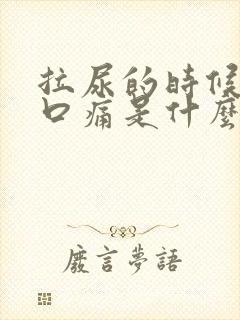 拉尿的時候
口痛是什麼
廢言夢語